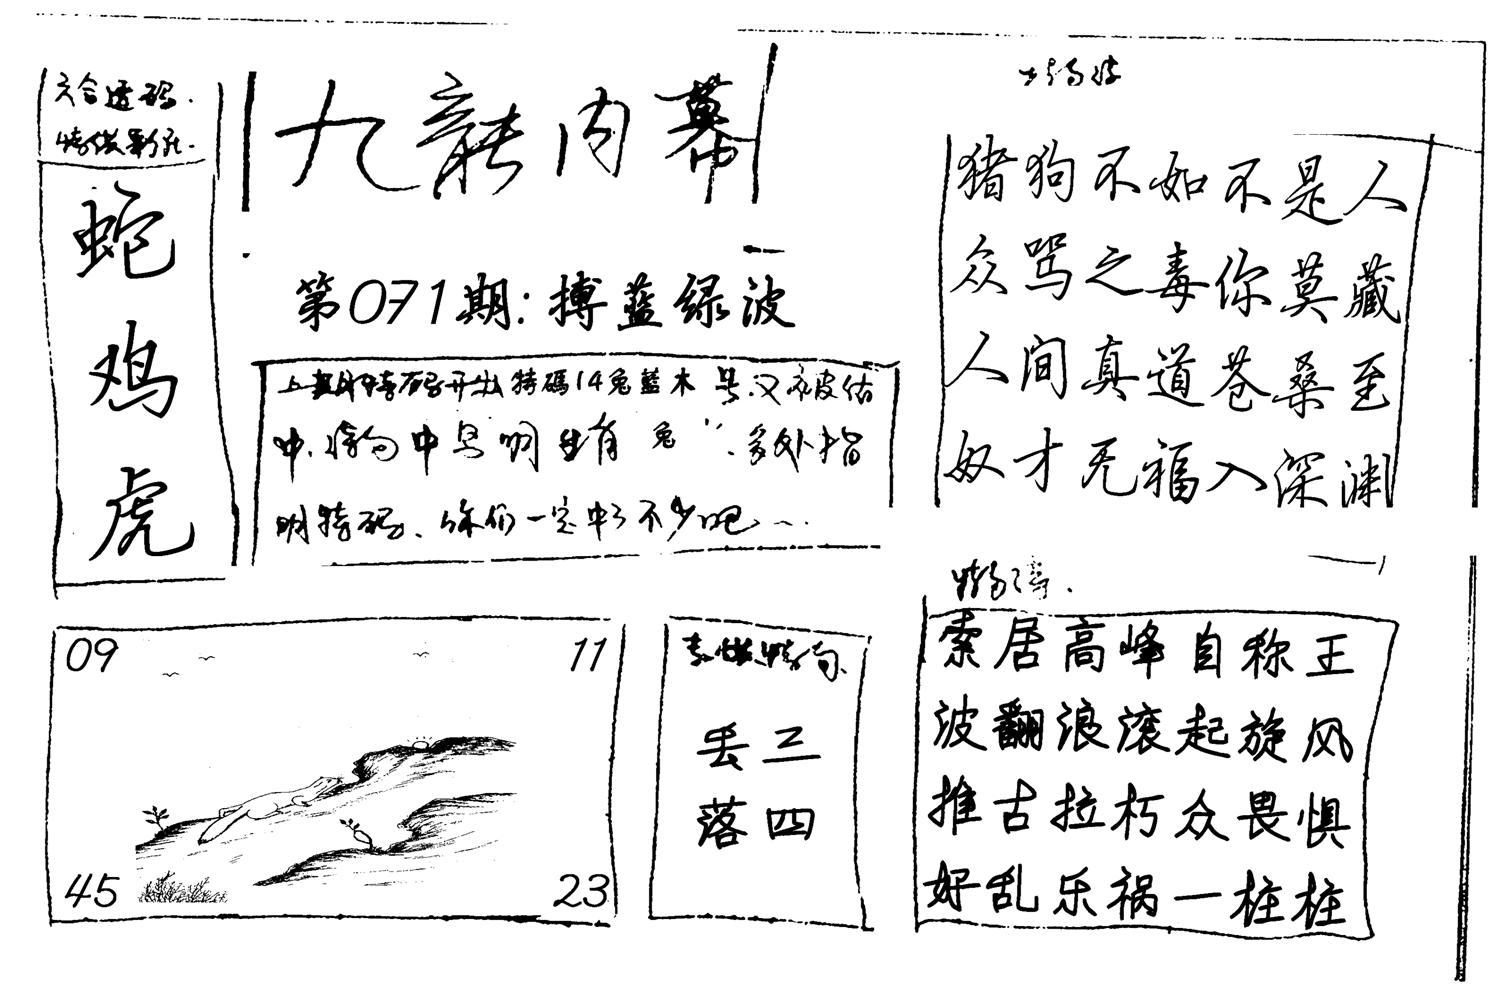 六合透码.
九龙内幕
蛇
鸡
虎
第071期:搏蓝绿波
特碼14兔蓝木号.又被估
中.中号明生肖兔.多处指
明特码、你们一定中了不少吧...
猪狗不如不是人
众骂之毒你莫藏
人间真道苍桑至
奴才无福入深渊
09
11
45
23
丢三
落四
索居高峰自称王
波翻浪滚起旋风
推古拉朽众畏惧
好乱乐祸一柱柱